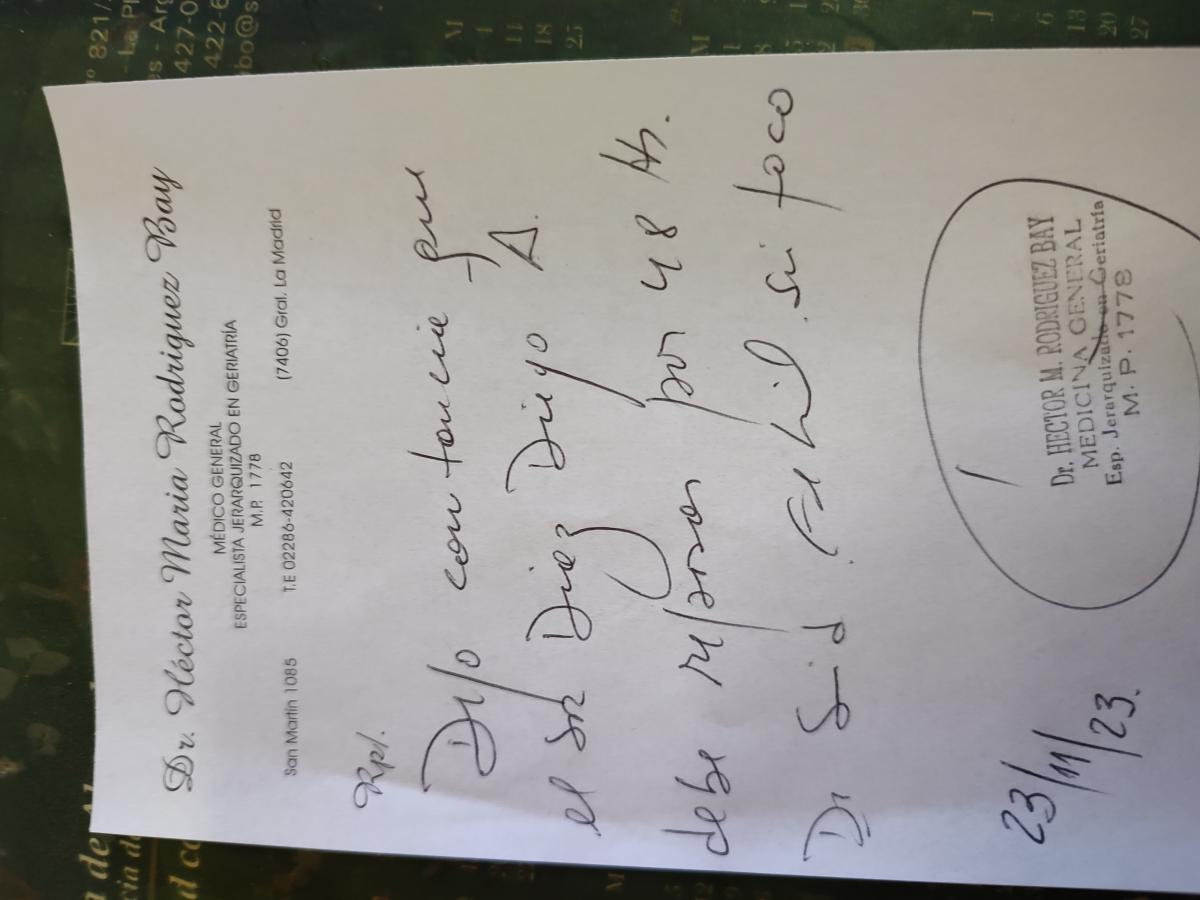 Dr. Héctor Maria Rodriguez Bay
MÉDICO GENERAL
ESPECIALISTA JERARQUIZADO EN GERIATRÍA
M.P. 1778
San Martín 1085 T.E 02286-420642 (7406) Gral. La Madrid
Rp/.
Dejo constancia que
el Sr Diez Diego A.
debe reposar por 48 Hs.
D Sind febril sin foco
23/11/23.
Dr. HECTOR M. RODRIGUEZ BAY
MEDICINA GENERAL
Esp. Jerarquizado en Geriatría
M. P. 1778